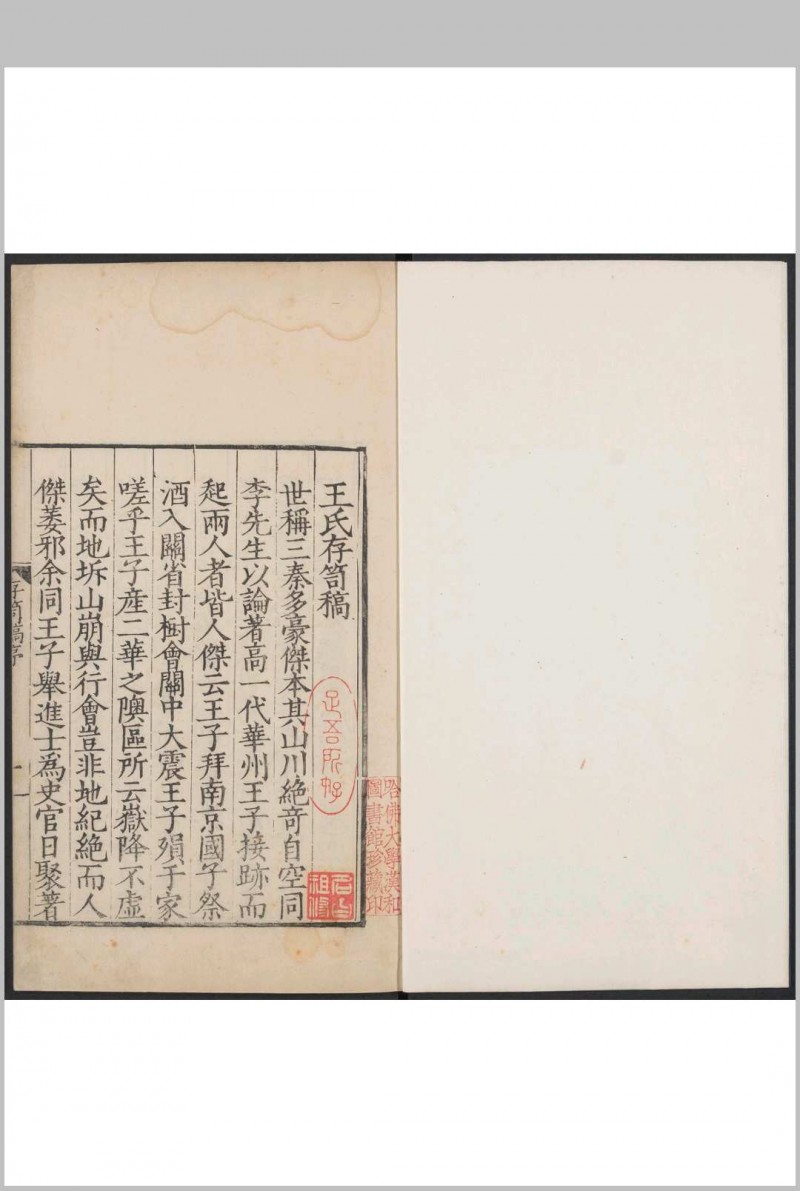 王氏存笥稿
世稱三秦多豪傑本其山川絶竒自空同
李先生以論著高一代華州王子接跡而
起兩人者皆人傑云王子拜南京國子祭
酒入關省封樹會關中大震王子殞于家
嗟乎王子産二華之隩區所云嶽降不虛
矣而地坼山崩與行會豈非地紀絶而人
傑萎邪余同王子舉進士爲史官日聚著
存笥稿序
一
足吾所好
哈佛大學漢和
圖書館珍藏印